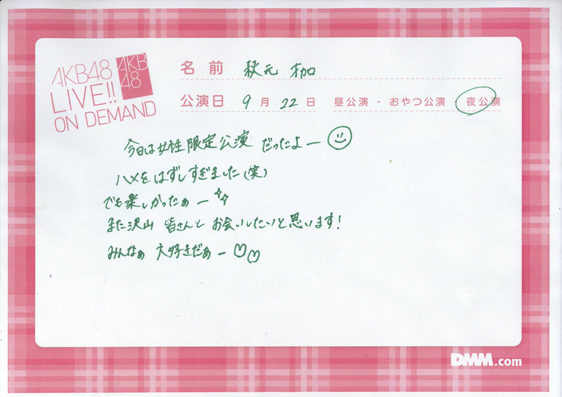 AKB48
LIVE!!
ON DEMAND
AKB
48
名前 秋元 才加
公演日 9月22日 昼公演・おやつ公演・夜公演
今日は女性限定公演 だったよー
ハメをはずしすぎました(笑)
でも楽しかったぁー
また沢山 皆さんと お会いしたいと思います!
みんなぁ 大好きだぁー
DMM.com